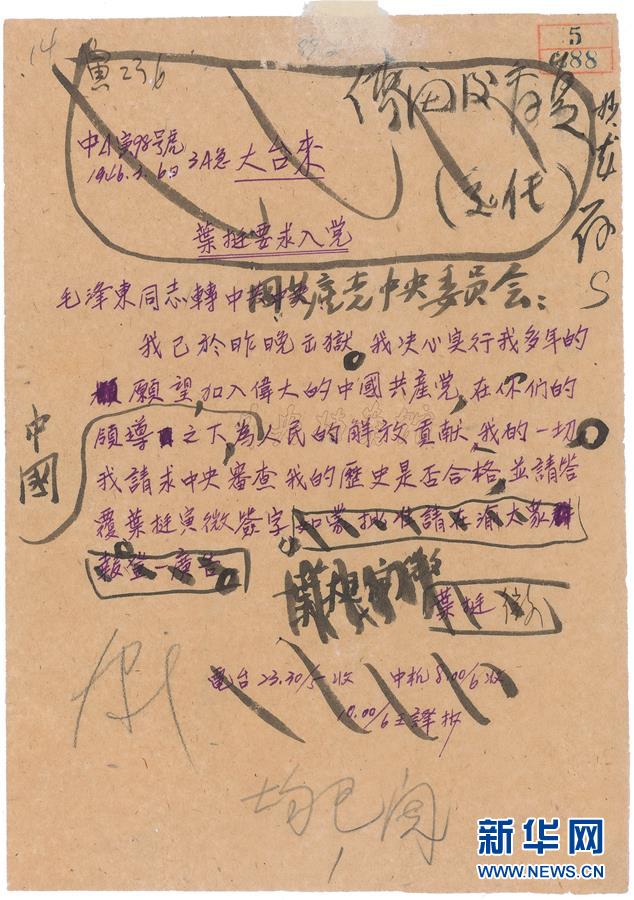 14
5
488
寅236
中A寅98號
1946.3.6日 3A急 大台来
葉挺要求入党
毛澤東同志轉中共中央
國共産党中央委員会：
我已於昨晚出獄，我决心实行我多年的
願望，加入偉大的中國共産党，在你们的
領導之下，為人民的解放貢献，我的一切，
中國
我請求中央審查我的歷史是否合格，並請答
覆葉挺寅微签字 如蒙批准請在渝大象
報登一廣告
葉挺
電台23.30/5收 中机8.00/6收
10.00/6
均已阅
新华网
WWW.NEWS.CN